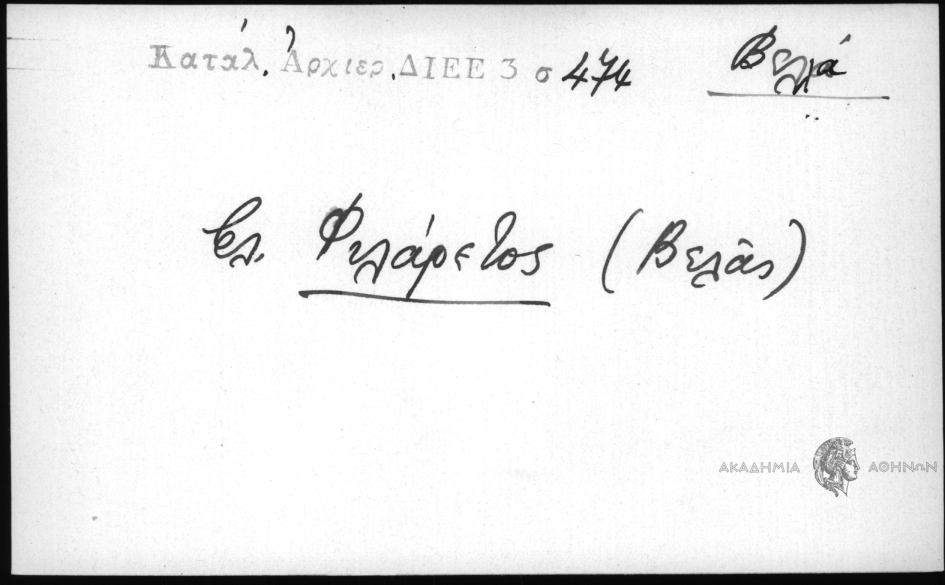 Κατάλ. Ἀρχιερ. ΔΙΕΕ 3 σ 474 Βελλά
βλ. Φιλάρετος (Βελᾶς)
ΑΚΑΔΗΜΙΑ ΑΘΗΝΩΝ